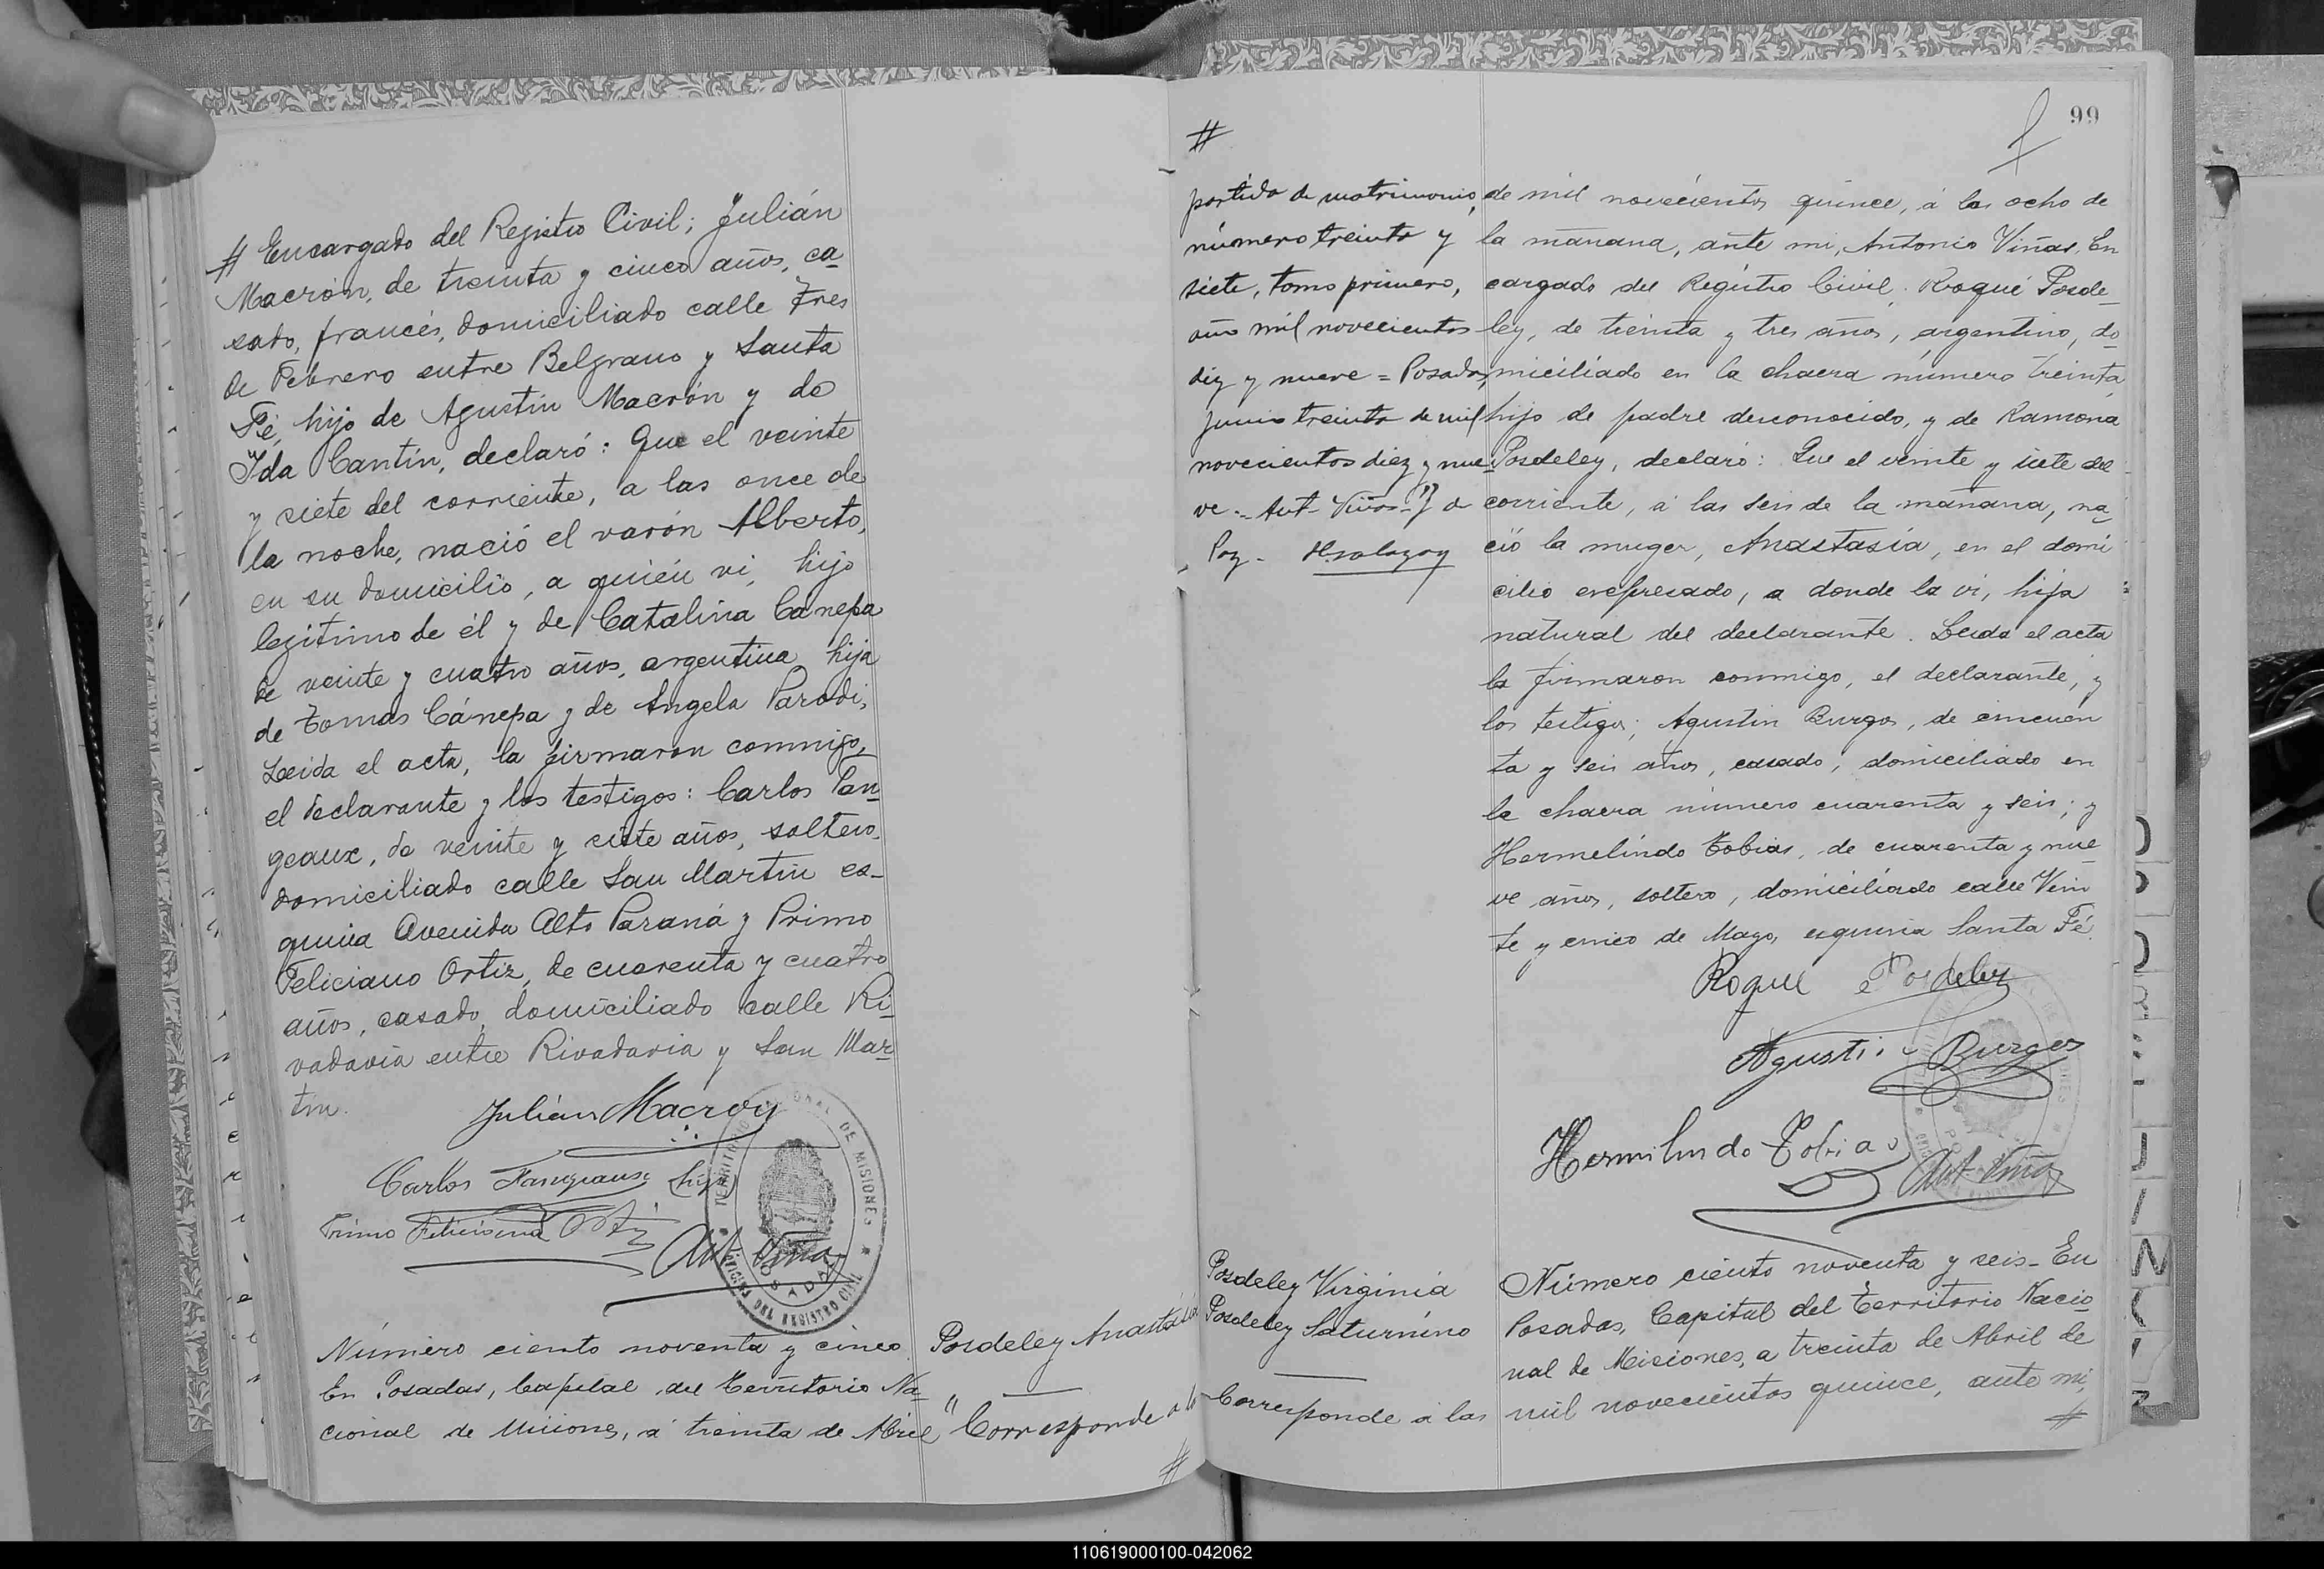 # Encargado del Registro Civil; Julián
Macrón, de treinta y cinco años, ca-
sado, francés, domiciliado calle Tres
de Febrero entre Belgrano y Santa
Fé, hijo de Agustín Macrón y de
Ida Cantín, declaró: Que el veinte
y siete del corriente, a las once de
la noche, nació el varón Alberto,
en su domicilio, a quién vi, hijo
legítimo de él y de Catalina Canepa
de veinte y cuatro años, argentina hija
de Tomás Cánepa y de Angela Parodi,
Leida el acta, la firmaron conmigo,
el declarante y los testigos: Carlos Fan-
geaux, de veinte y siete años, soltero,
domiciliado calle San Martín es-
quina Avenida Alto Paraná y Primo
Feliciano Ortiz, de cuarenta y cuatro
años, casado, domiciliado calle Ri-
vadavia entre Rivadavia y San Mar-
tin.
Julián Macron
Carlos Fangeaux (hijo)
Primo Feliciano Ortiz
Ant Viñas
TERRITORIO NACIONAL DE MISIONES
OFICINA DEL REGISTRO CIVIL
POSADAS
Número ciento noventa y cinco
En Posadas, Capital del Territorio Na-
cional de Misiones, á treinta de Abril
Posdeley Anastasia
"Corresponde a la
#
#
partida de matrimonio,
número treinta y
siete, tomo primero,
año mil novecientos
diez y nueve = Posadas,
Junio treinta de mil
novecientos diez y nue-
ve.- Ant- Viñas-"} o
Paz-
99
de mil novecientos quince, á las ocho de
la mañana, ante mi, Antonio Viñas, En
cargado del Registro Civil; Roque Posde-
ley, de treinta y tres años, argentino, do-
miciliado en la chacra número treinta
hijo de padre desconocido, y de Ramona
Posdeley, declaró: Que el veinte y siete del
corriente, á las seis de la mañana, na-
ció la muger, Anastasia, en el domi
cilio expresado, a donde la vi, hija
natural del declarante. Leida el acta
la firmaron conmigo, el declarante, y
los testigos; Agustin Burgos, de cincuen
ta y seis años, casado, domiciliado en
la chacra número cuarenta y seis; y
Hermelindo Tobias, de cuarenta y nue-
ve años, soltero, domiciliado calle Vein
te y cinco de Mayo, esquina Santa Fé.
Roque Posdeley
Agustin Burgos
Hermilindo Tobias
Ant Viñas
Posdeley Virginia
Posdeley Saturnino
Corresponde á las
Número ciento noventa y seis- En
Posadas, Capital del Territorio Nacio-
nal de Misiones, a treinta de Abril de
mil novecientos quince, ante mi,
#
110619000100-042062